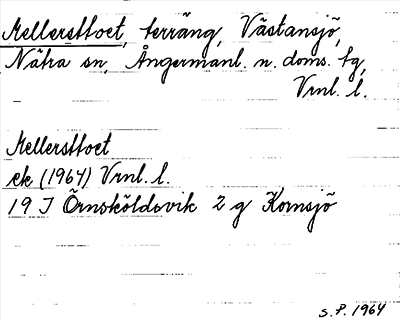 Mellersttoet, terräng, Västansjö,
Nätra sn, Ångermanl. n. doms. tg,
Vrnl. l.
Mellersttoet
ek (1964) Vrnl. l.
19 J Örnsköldsvik 2 g Kornsjö
S.P. 1964